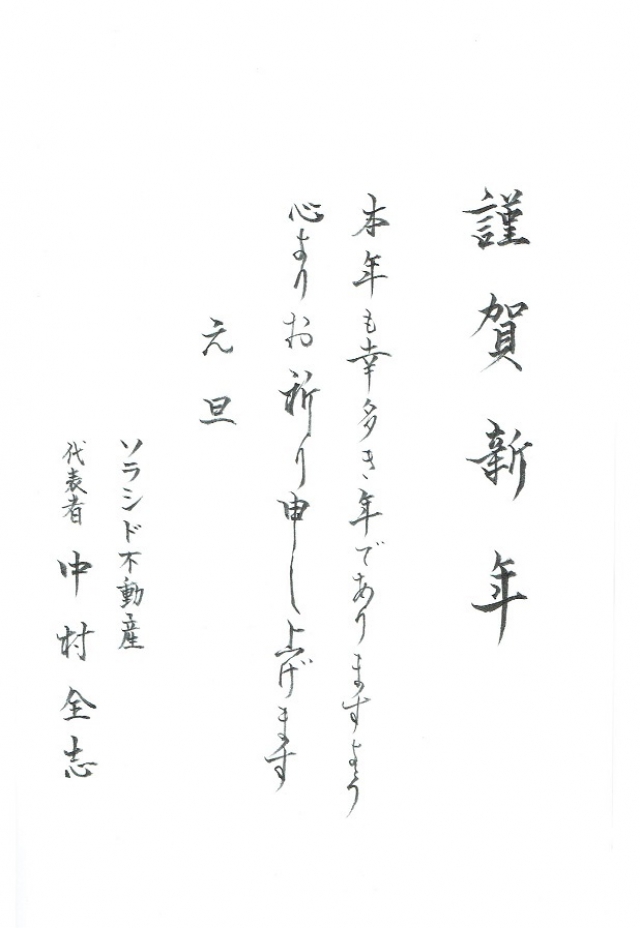 謹賀新年
本年も幸多き年でありますよう
心よりお祈り申し上げます
元旦
ソラシド不動産
代表者 中村全志